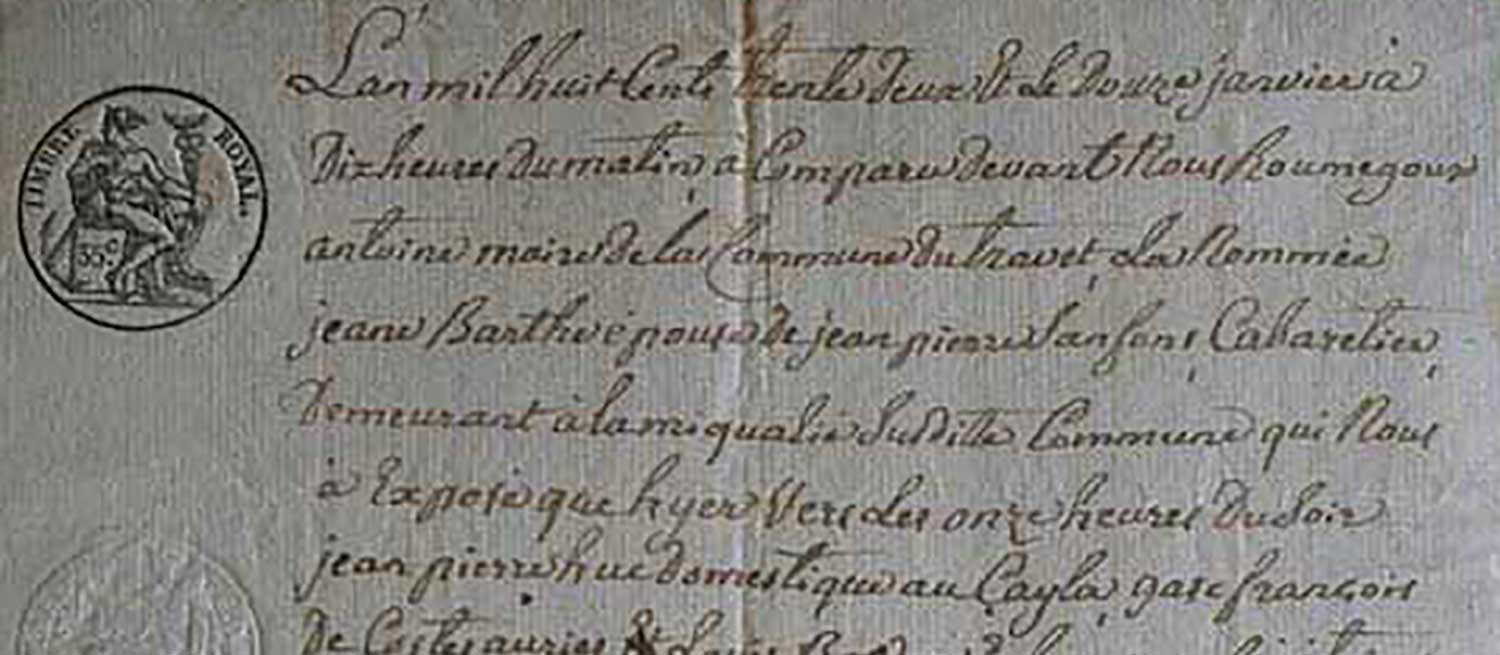 TIMBRE ROYAL.
35c
L'an mil huit Cents trente deux Et le douze janvier à
Dix heures du matin a Comparu devant Nous Roumegoux
antoine maire de la Commune du travet, la Nommée
jeane Barthe épouse de jean pierre Sanfons, Cabaretier,
Demeurant à la miqualié Susditte Commune qui Nous
à Exposé que hyer Vers les onze heures Du Soir
jean pierre hue domestique au Cayla, gasc françois
De Costesauries Et Louis